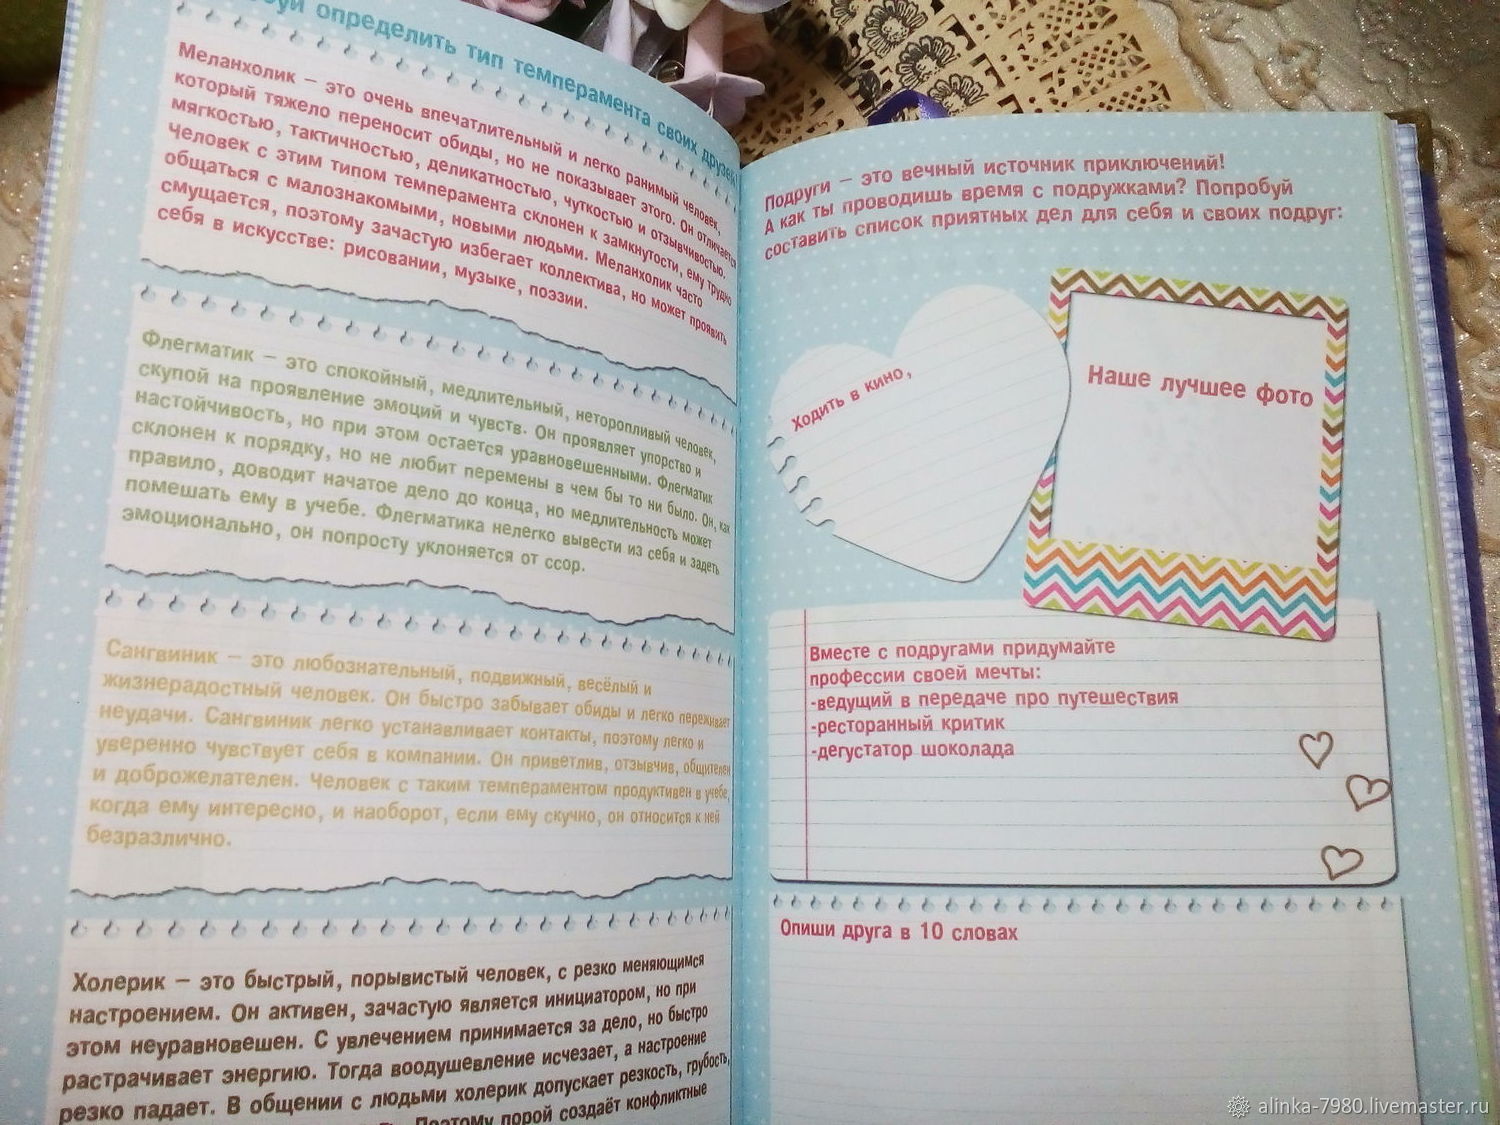 определить тип темперамента своих друзей
Меланхолик – это очень впечатлительный и легко ранимый человек,
который тяжело переносит обиды, но не показывает этого. Он отличается
мягкостью, тактичностью, деликатностью, чуткостью и отзывчивостью.
Человек с этим типом темперамента склонен к замкнутости, ему трудно
общаться с малознакомыми, новыми людьми. Меланхолик часто
смущается, поэтому зачастую избегает коллектива, но может проявить
себя в искусстве: рисовании, музыке, поэзии.
Флегматик – это спокойный, медлительный, неторопливый человек,
скупой на проявление эмоций и чувств. Он проявляет упорство и
настойчивость, но при этом остается уравновешенными. Флегматик
склонен к порядку, но не любит перемены в чем бы то ни было. Он, как
правило, доводит начатое дело до конца, но медлительность может
помешать ему в учебе. Флегматика нелегко вывести из себя и задеть
эмоционально, он попросту уклоняется от ссор.
Сангвиник – это любознательный, подвижный, весёлый и
жизнерадостный человек. Он быстро забывает обиды и легко переживает
неудачи. Сангвиник легко устанавливает контакты, поэтому легко и
уверенно чувствует себя в компании. Он приветлив, отзывчив, общителен
и доброжелателен. Человек с таким темпераментом продуктивен в учебе,
когда ему интересно, и наоборот, если ему скучно, он относится к ней
безразлично.
Холерик – это быстрый, порывистый человек, с резко меняющимся
настроением. Он активен, зачастую является инициатором, но при
этом неуравновешен. С увлечением принимается за дело, но быстро
растрачивает энергию. Тогда воодушевление исчезает, а настроение
резко падает. В общении с людьми холерик допускает резкость, грубость,
Поэтому порой создаёт конфликтные
Подруги – это вечный источник приключений!
А как ты проводишь время с подружками? Попробуй
составить список приятных дел для себя и своих подруг:
Ходить в кино,
Наше лучшее фото
Вместе с подругами придумайте
профессии своей мечты:
-ведущий в передаче про путешествия
-ресторанный критик
-дегустатор шоколада
Опиши друга в 10 словах
alinka-7980.livemaster.ru